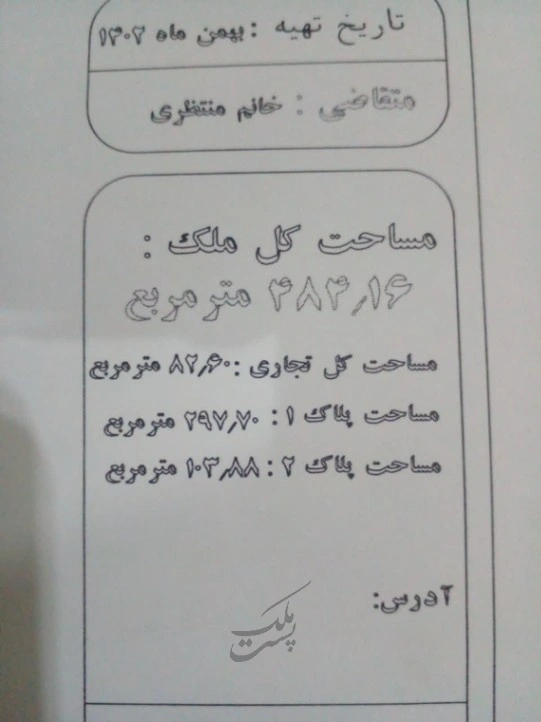 تاریخ تهیه : بهمن ماه ۱۴۰۲
متقاضی : خانم منتظری
مساحت کل ملک :
۴۸۴٫۱۶ متر مربع
مساحت کل تجاری : ۸۲٫۶۰ متر مربع
مساحت پلاک ۱ : ۲۹۷٫۷۰ متر مربع
مساحت پلاک ۲ : ۱۰۳٫۸۸ متر مربع
آدرس:
ملک
پست